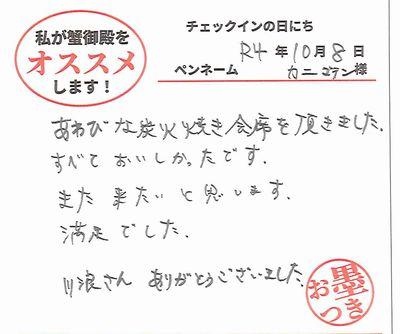 私が蟹御殿を
オススメ
します！
チェックインの日にち
R4年10月8日
ペンネーム カニゴテン様
あわびな炭火焼き会席を頂きました。
すべておいしかったです。
また来たいと思います。
満足でした。
川浪さん ありがとうございました。
お墨つき